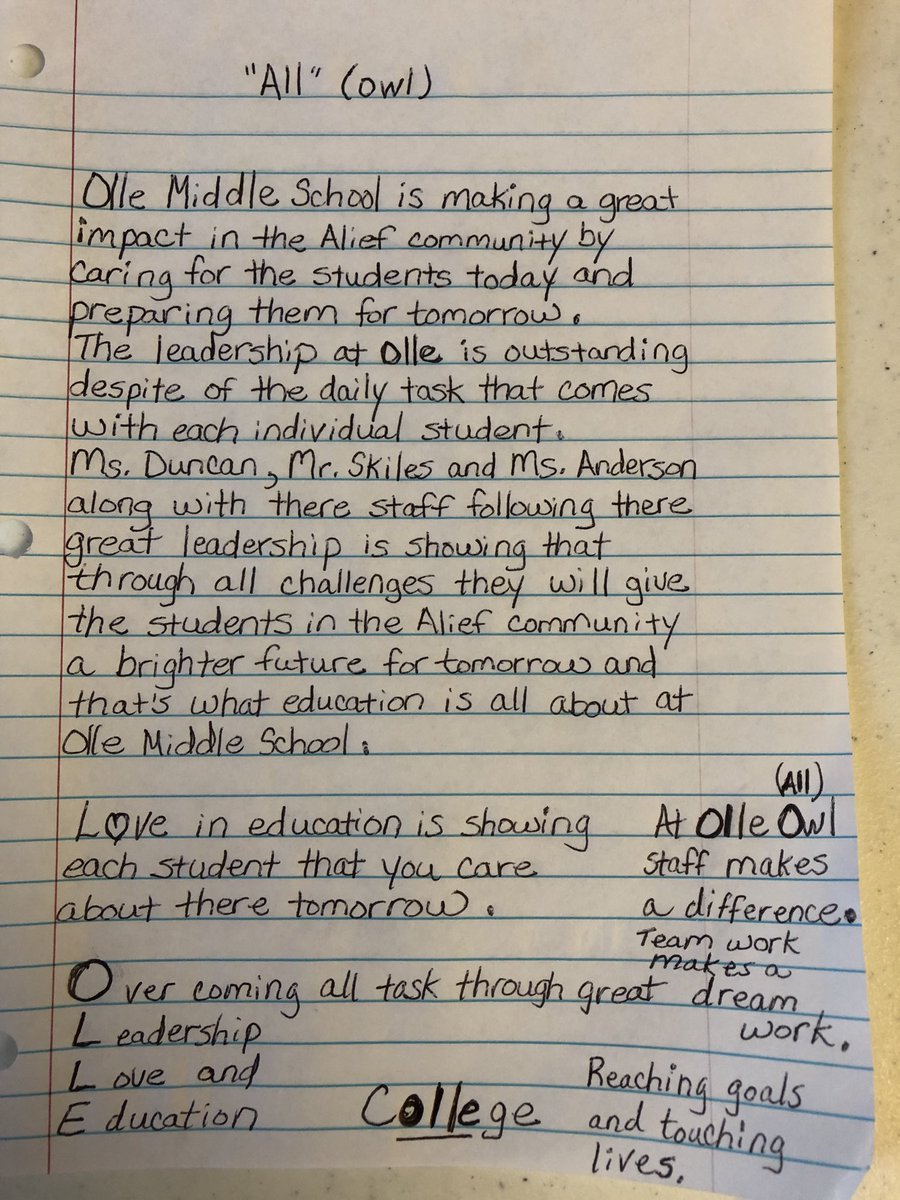 "All" (owl)
Olle Middle School is making a great
impact in the Alief community by
caring for the students today and
preparing them for tomorrow.
The leadership at Olle is outstanding
despite of the daily task that comes
with each individual student.
Ms. Duncan, Mr. Skiles and Ms. Anderson
along with there staff following there
great leadership is showing that
through all challenges they will give
the students in the Alief community
a brighter future for tomorrow and
that's what education is all about at
Olle Middle School.
Love in education is showing
each student that you care
about there tomorrow.
(All)
At Olle Owl
staff makes
a difference.
Team work
makes a
dream
work.
Over coming all task through great
Leadership
Love and
Education
College
Reaching goals
and touching
lives.